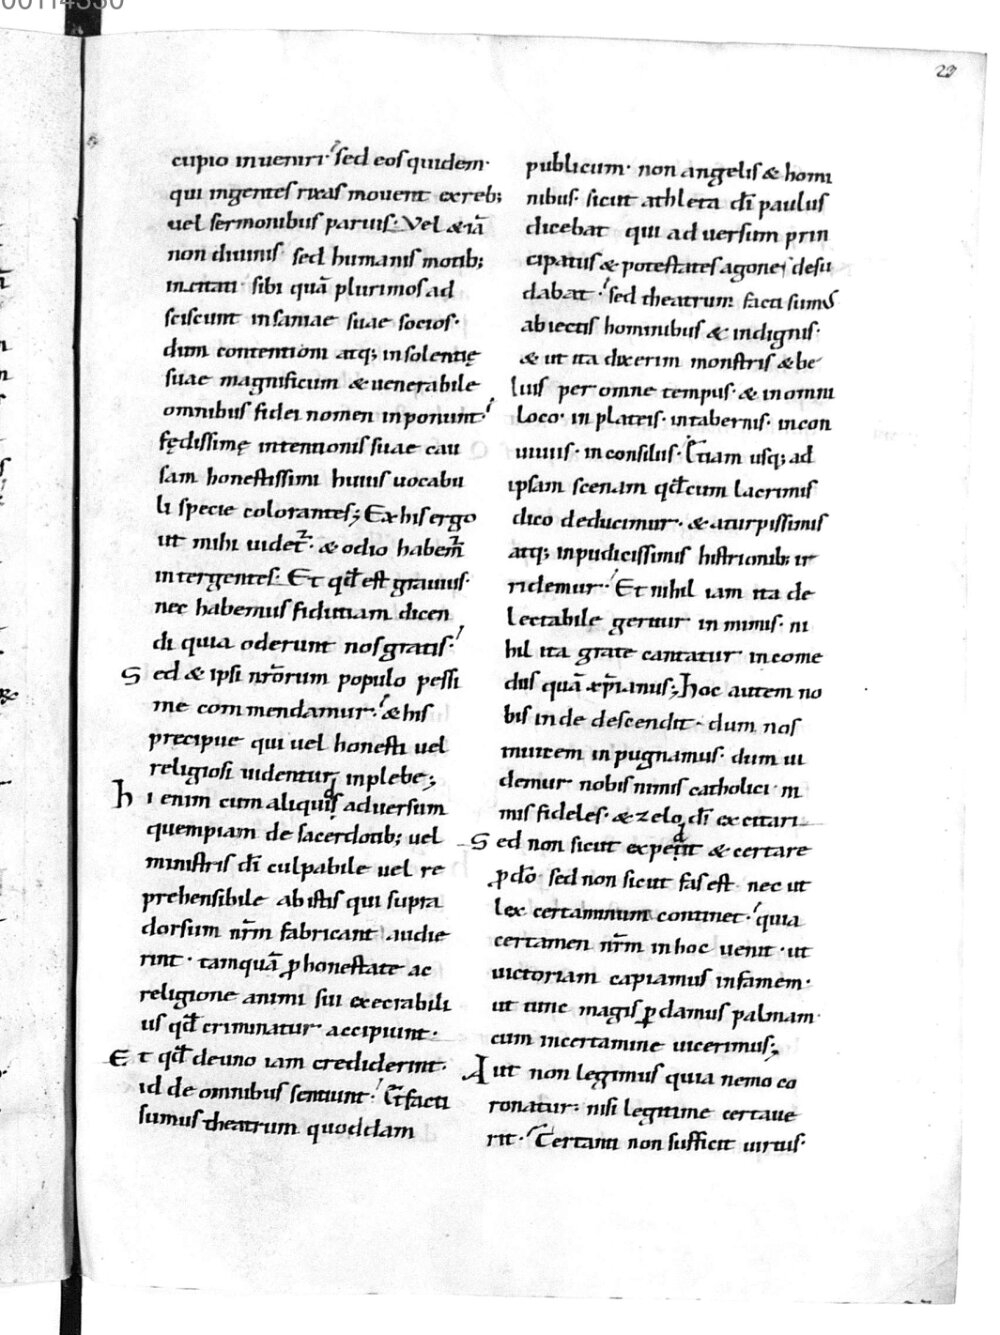 00114330
29
cupio inueniri· sed eos quidem·
qui ingentes rixas mouent ex reb;
uel sermonibus paruis· Vel &iā
non diuinis sed humanis motib;
incitati sibi quā plurimos ad
sciscunt insaniae suae socios·
dum contentioni atq; insolentię
suae magnificum & uenerabile
omnibus fidei nomen inponunt·
fędissimę intentionis suae cau
sam honestissimi huius uocabu
li specie colorantes; Ex his ergo
ut mihi uidet᷑· & odio habem᷑
inter gentes· Et qd̄ est grauius·
nec habemus fidutiam dicen
di quia oderunt nos gratis·
Sed & ipsi nr̄orum populo pessi
me commendamur· & his
pręcipue qui uel honesti uel
religiosi uidentur, in plebe;
hi enim cum aliquis aduersum
quempiam de sacerdotib; uel
ministris dī culpabile uel re
prehensibile ab istis qui supra
dorsum nr̄m fabricant audie
rint· tamquā ꝓ honestate ac
religione animi sui execrabili
us qd̄ criminatur accipiunt·
Et qd̄ de uno iam crediderint·
id de omnibus sentiunt· Et̄ facti
sumus theatrum quoddam
publicum· non angelis & homi
nibus· sicut athleta dī paulus
dicebat qui aduersum prin
cipatus & potestates agones desu
dabat· sed theatrum facti sumus
abiectis hominibus & indignis·
& ut ita dixerim monstris & be
luis per omne tempus· & in omni
loco· in plateis· in tabernis· in con
uiuiis· in consiliis· Etiam usq; ad
ipsam scenam qd̄ cum lacrimis
dico deducimur· & a turpissimis
atq; inpudicissimis histrionib; ir
ridemur· Et nihil iam ita de
lectabile geritur in mimis· ni
hil ita grate cantatur in come
diis quā xp̄ianus; hoc autem no
bis inde descendit· dum nos
inuicem inpugnamus· dum ui
demur nobis nimis catholici ni
mis fideles· & zelo dī excitari
Sed non sicut expetit & certare
ꝓ dō sed non sicut fas est nec ut
lex certaminum continet· quia
certamen nr̄m in hoc uenit· ut
uictoriam capiamus infamem·
ut tunc magis ꝑdamus palmam
cum in certamine uicerimus;
Aut non legimus quia nemo co
ronatur: nisi legitime certaue
rit· Certanti non sufficit uirtus·